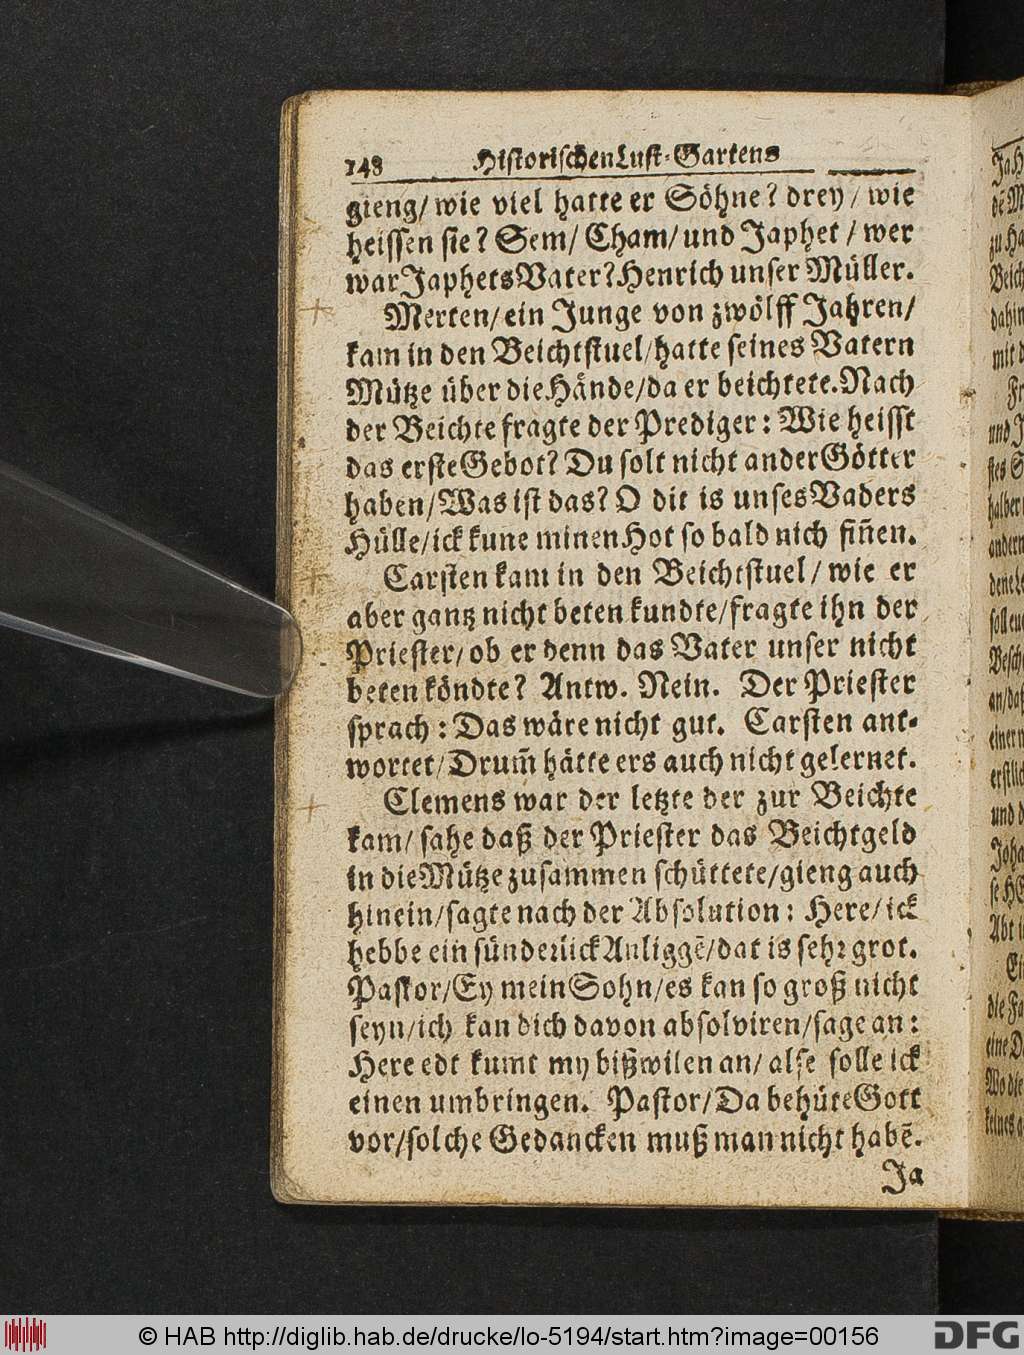 148 Historischen Lust-Gartens
gieng/ wie viel hatte er Söhne? drey/ wie
heissen sie? Sem/ Cham/ und Japhet / wer
war Japhets Vater? Henrich unser Müller.
Merten/ ein Junge von zwölff Jahren/
kam in den Beichtstuel/ hatte seines Vatern
Mütze über die Hände/ da er beichtete. Nach
der Beichte fragte der Prediger: Wie heisst
das erste Gebot? Du solt nicht ander Götter
haben/ Was ist das? O dit is unses Vaders
Hülle/ ick kune minen Hot so bald nich fiñen.
Carsten kam in den Beichtstuel/ wie er
aber gantz nicht beten kundte/ fragte ihn der
Priester/ ob er denn das Vater unser nicht
beten köndte? Antw. Nein. Der Priester
sprach: Das wäre nicht gut. Carsten ant-
wortet/ Drum̃ hätte ers auch nicht gelernet.
Clemens war der letzte der zur Beichte
kam/ sahe daß der Priester das Beichtgeld
in die Mütze zusammen schüttete/ gieng auch
hinein/ sagte nach der Absolution: Here/ ick
hebbe ein sünderlick Anliggẽ/ dat is sehr grot.
Pastor/ Ey mein Sohn/ es kan so groß nicht
seyn/ ich kan dich davon absolviren/ sage an:
Here edt kumt my bißwilen an/ alse solle ick
einen umbringen. Pastor/ Da behüte Gott
vor/ solche Gedancken muß man nicht habẽ.
Ja
© HAB http://diglib.hab.de/drucke/lo-5194/start.htm?image=00156
DFG